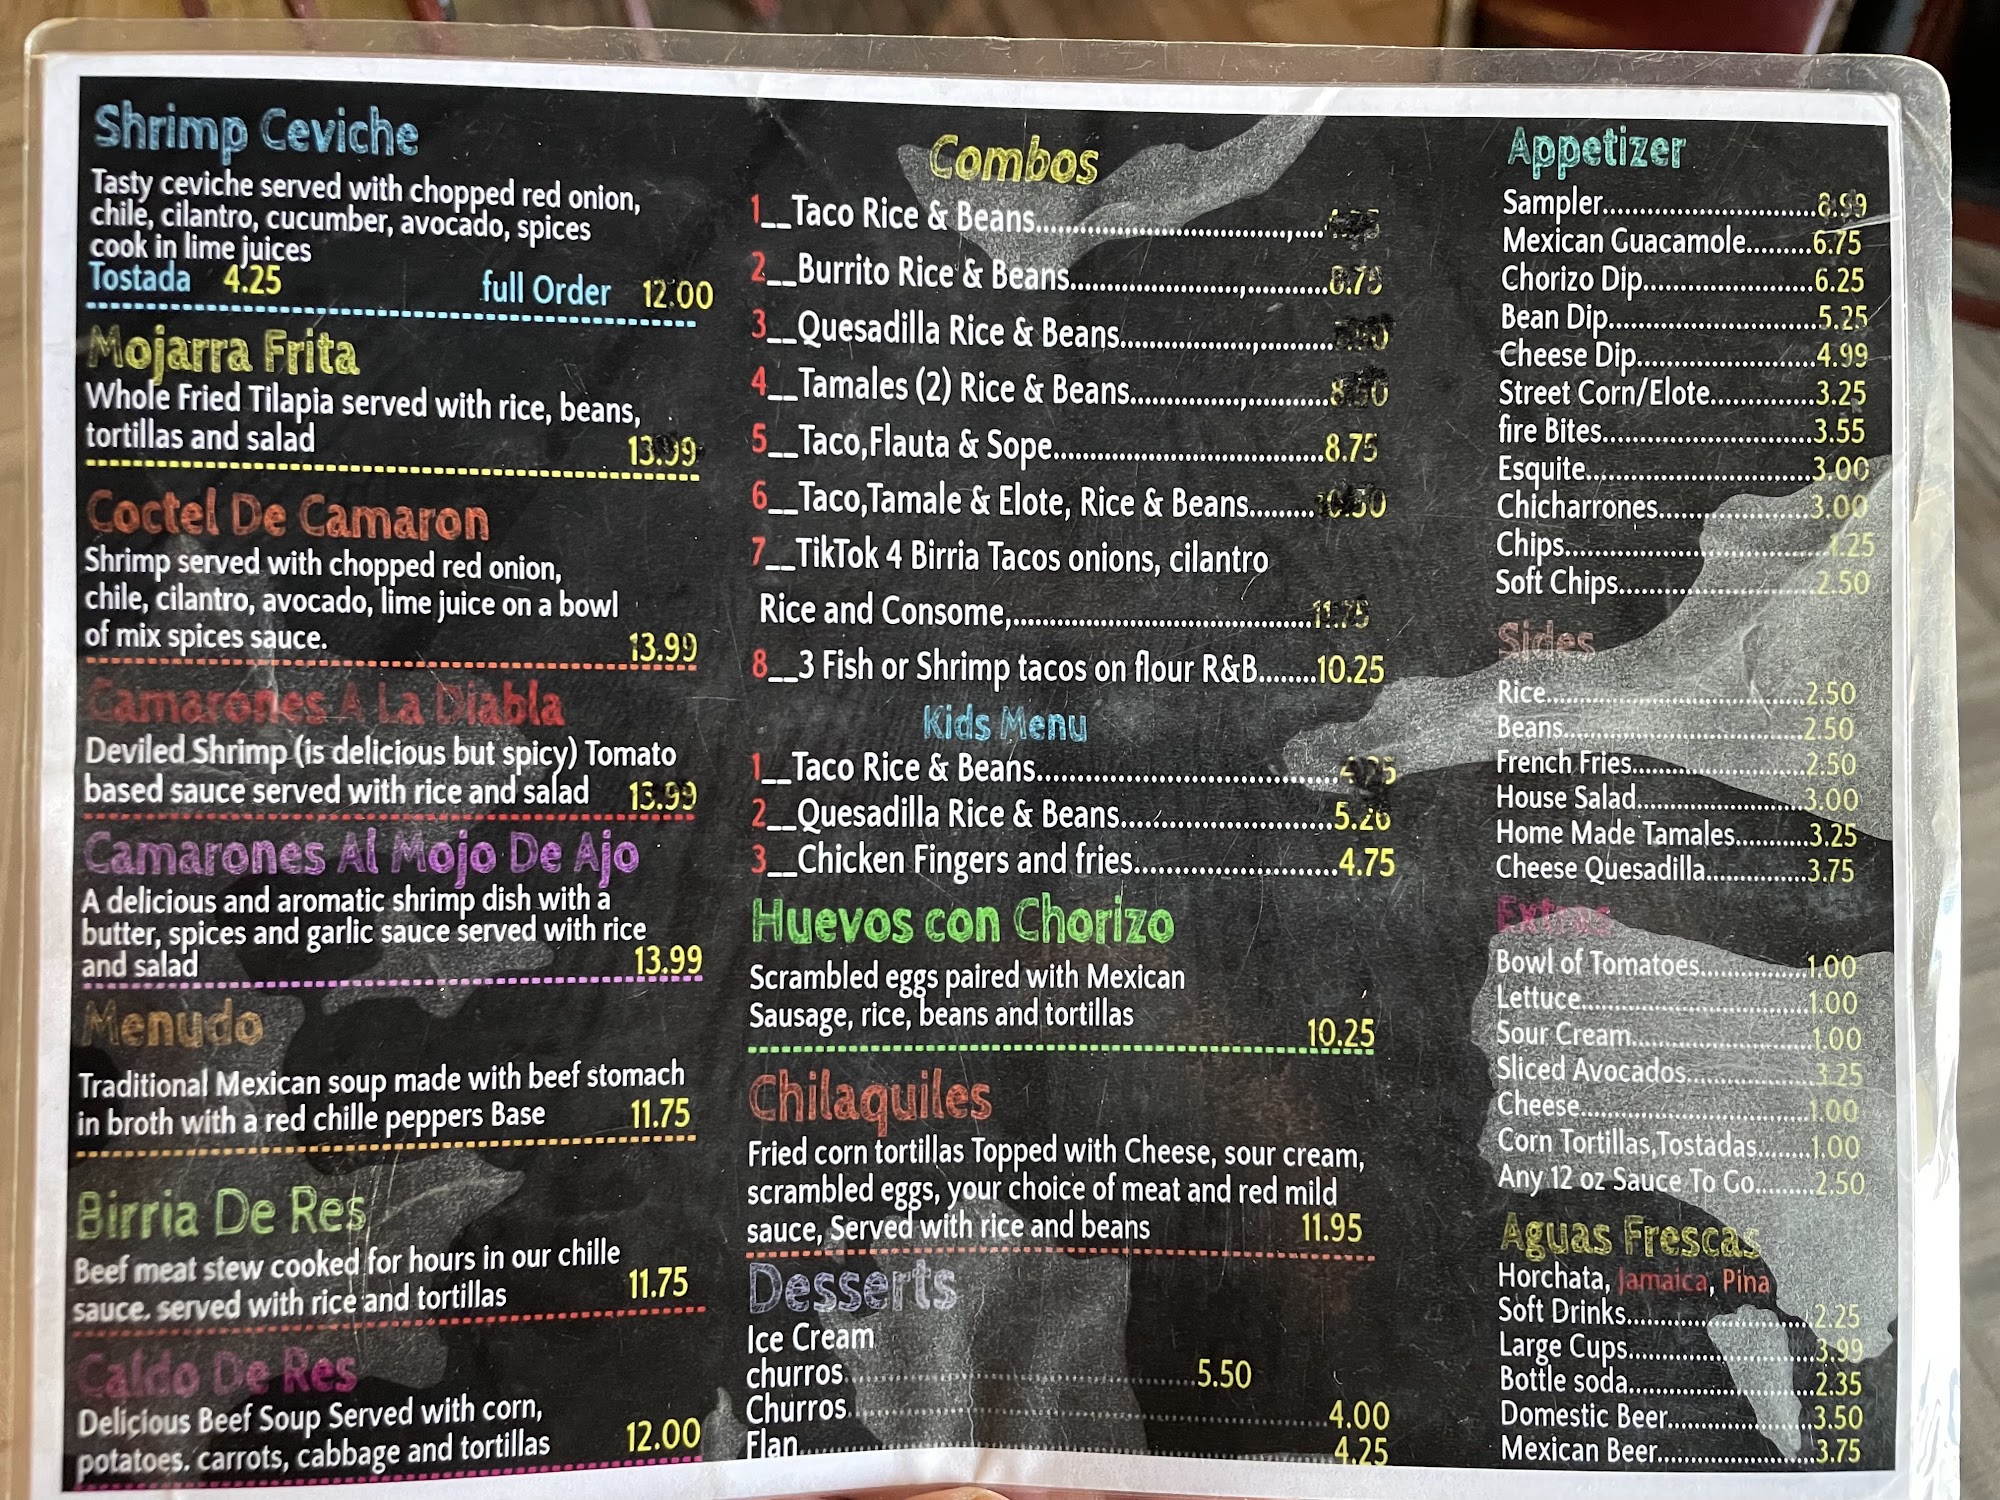 Shrimp Ceviche
Tasty ceviche served with chopped red onion,
chile, cilantro, cucumber, avocado, spices
cook in lime juices
Tostada 4.25 full Order 12.00
Mojarra Frita
Whole Fried Tilapia served with rice, beans,
tortillas and salad 13.99
Coctel De Camaron
Shrimp served with chopped red onion,
chile, cilantro, avocado, lime juice on a bowl
of mix spices sauce. 13.99
Camarones A La Diabla
Deviled Shrimp (is delicious but spicy) Tomato
based sauce served with rice and salad 13.99
Camarones Al Mojo De Ajo
A delicious and aromatic shrimp dish with a
butter, spices and garlic sauce served with rice
and salad 13.99
Menudo
Traditional Mexican soup made with beef stomach
in broth with a red chille peppers Base 11.75
Birria De Res
Beef meat stew cooked for hours in our chille
sauce. served with rice and tortillas 11.75
Caldo De Res
Delicious Beef Soup Served with corn,
potatoes. carrots, cabbage and tortillas 12.00
Combos
1__Taco Rice & Beans
2__Burrito Rice & Beans 8.75
3__Quesadilla Rice & Beans
4__Tamales (2) Rice & Beans 8.50
5__Taco,Flauta & Sope 8.75
6__Taco,Tamale & Elote, Rice & Beans 10.50
7__TikTok 4 Birria Tacos onions, cilantro
Rice and Consome, 11.75
8__3 Fish or Shrimp tacos on flour R&B 10.25
Kids Menu
1__Taco Rice & Beans
2__Quesadilla Rice & Beans
3__Chicken Fingers and fries 4.75
Huevos con Chorizo
Scrambled eggs paired with Mexican
Sausage, rice, beans and tortillas 10.25
Chilaquiles
Fried corn tortillas Topped with Cheese, sour cream,
scrambled eggs, your choice of meat and red mild
sauce, Served with rice and beans 11.95
Desserts
Ice Cream
churros 5.50
Churros 4.00
Flan 4.25
Appetizer
Sampler 8.99
Mexican Guacamole 6.75
Chorizo Dip 6.25
Bean Dip 5.25
Cheese Dip 4.99
Street Corn/Elote 3.25
fire Bites 3.55
Esquite 3.00
Chicharrones 3.00
Chips 1.25
Soft Chips 2.50
Sides
Rice 2.50
Beans 2.50
French Fries 2.50
House Salad 3.00
Home Made Tamales 3.25
Cheese Quesadilla 3.75
Extras
Bowl of Tomatoes 1.00
Lettuce 1.00
Sour Cream 1.00
Sliced Avocados 3.25
Cheese 1.00
Corn Tortillas,Tostadas 1.00
Any 12 oz Sauce To Go 2.50
Aguas Frescas
Horchata, Jamaica, Pina
Soft Drinks 2.25
Large Cups 3.99
Bottle soda 2.35
Domestic Beer 3.50
Mexican Beer 3.75